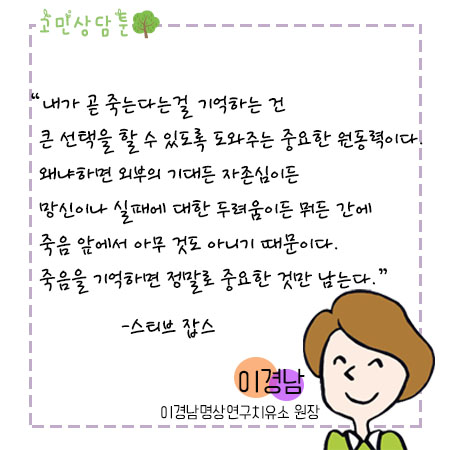 고민상담톡
“내가 곧 죽는다는걸 기억하는 건
큰 선택을 할 수 있도록 도와주는 중요한 원동력이다.
왜냐하면 외부의 기대든 자존심이든
망신이나 실패에 대한 두려움이든 뭐든 간에
죽음 앞에서 아무 것도 아니기 때문이다.
죽음을 기억하면 정말로 중요한 것만 남는다.”
-스티브 잡스
이경남
이경남명상연구치유소 원장